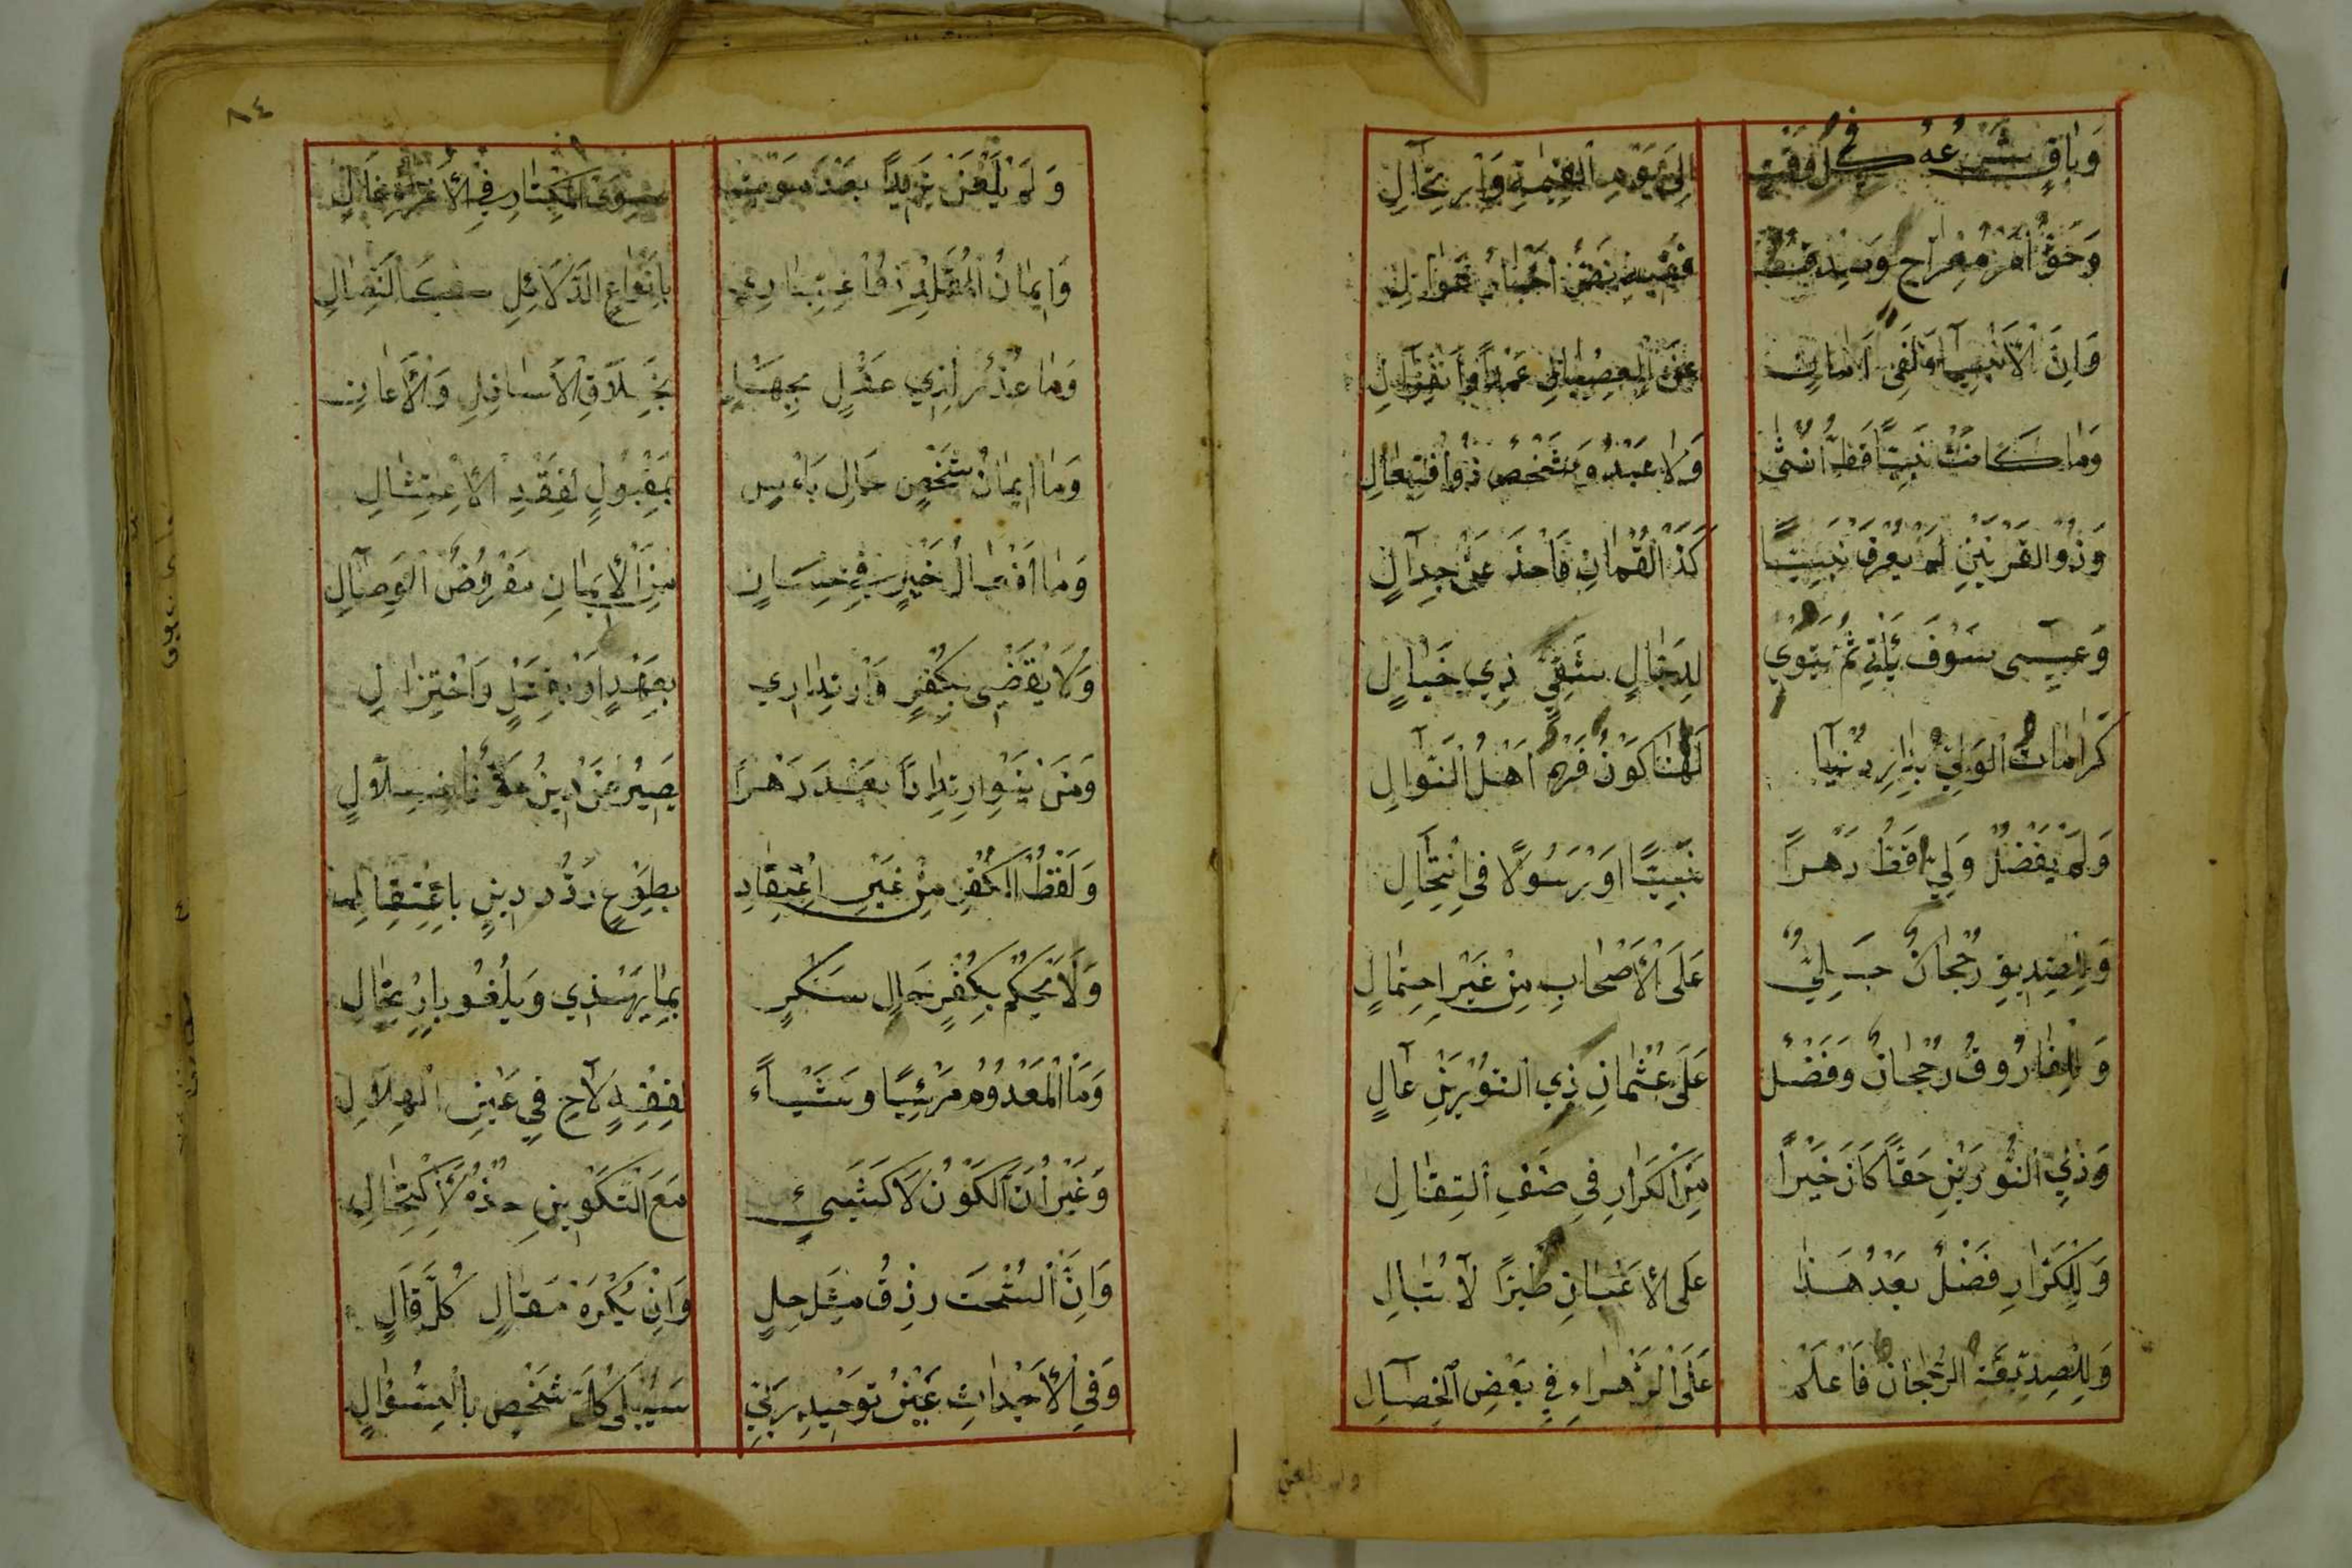 وَبَاقٍ شَرْعُهُ فِي كُلِّ وَقْتٍ إِلَى يَوْمِ الْقِيمَةِ وَارْتِحَالِ
وَحَقٌّ أَمْرُ مِعْرَاجٍ وَصِدْقٌ فَفِيهِ نَصُّ أَخْبَارٍ عَوَالِ
وَاِنَّ الْاَنْبِيَاءَ لَفِي اَمَانٍ عَنِ الْعِصْيَانِ عَمْدًا وَانْعِزَالِ
وَمَا كَانَتْ نَبِيًّا قَطُّ اُنْثَى وَلَا عَبْدٌ وَشَخْصٌ ذُو افْتِعَالِ
وَذُو الْقَرْنَيْنِ لَمْ يُعْرَفْ نَبِيًّا كَذَا لُقْمَانُ فَاحْذَرْ عَنْ جِدَالٍ
وَعِيسَى سَوْفَ يَأْتِي ثُمَّ يَتْوِي لِدَجَّالٍ شَقِيٍّ ذِي خَبَالٍ
كَرَامَاتُ الْوَلِيِّ بِدَارِ دُنْيَا لَهَا كَوْنٌ فَهُمْ اَهْلُ النَّوَالِ
وَلَمْ يَفْضُلْ وَلِيٌّ قَطُّ دَهْرًا نَبِيًّا اَوْ رَسُولًا فِي انْتِحَالِ
وَلِلصِّدِّيقِ رُجْحَانٌ جَلِيٌّ عَلَى الْاَصْحَابِ مِنْ غَيْرِ احْتِمَالٍ
وَلِلْفَارُوقِ رُجْحَانٌ وَفَضْلٌ عَلَى عُثْمَانَ ذِي النُّورَيْنِ عَالٍ
وَذِي النُّورَيْنِ حَقًّا كَانَ خَيْرًا مِنَ الْكَرَّارِ فِي صَفِّ الْقِتَالِ
وَلِلْكَرَّارِ فَضْلٌ بَعْدَ هَذَا عَلَى الْاَغْيَارِ طُرًّا لَا تُبَالِ
وَلِلصِّدِّيقَةِ الرُّجْحَانُ فَاعْلَمْ عَلَى الزَّهْرَاءِ فِي بَعْضِ الْخِصَالِ
ولم يلعن
٨٤
وَلَمْ يَلْعَنْ يَزِيدًا بَعْدَ مَوْتٍ سِوَى الْمِكْثَارِ فِي الْاِغْرَاءِ غَالٍ
وَاِيمَانُ الْمُقَلِّدِ ذُو اعْتِبَارٍ بِاَنْوَاعِ الدَّلَائِلِ كَالنِّصَالِ
وَمَا عُذْرٌ لِذِي عَقْلٍ بِجَهْلٍ بِخَلَّاقِ الْاَسَافِلِ وَالْاَعَالِي
وَمَا اِيمَانُ شَخْصٍ حَالَ بَاْسٍ بِمَقْبُولٍ لِفَقْدِ الْاِمْتِثَالِ
وَمَا اَفْعَالُ خَيْرٍ فِي حِسَابٍ مِنَ الْاِيمَانِ مَفْرُوضُ الْوِصَالِ
وَلَا يُقْضَى بِكُفْرٍ وَارْتِدَادٍ بِعَهْرٍ اَوْ بِقَتْلٍ وَاخْتِزَالِ
وَمَنْ يَنْوِ ارْتِدَادًا بَعْدَ دَهْرٍ يَصِرْ عَنْ دِينِ حَقٍّ ذَا انْسِلَالِ
وَلَفْظُ الْكُفْرِ مِنْ غَيْرِ اعْتِقَادٍ بِطَوْعٍ رَدُّ دِينٍ بِاغْتِفَالِ
وَلَا يُحْكَمْ بِكُفْرٍ حَالَ سُكْرٍ بِمَا يَهْذِي وَيَلْغُو بِارْتِجَالِ
وَمَا الْمَعْدُومُ مَرْئِيًّا وَشَيْئًا لِفِقْهٍ لَاحَ فِي عَيْنِ الْهِلَالِ
وَغَيْرَانِ الْمُكَوَّنُ لَا كَشَيْءٍ مَعَ التَّكْوِينِ خُذْهُ لِاكْتِحَالِ
وَاِنَّ السُّحْتَ رِزْقٌ مِثْلُ حِلٍّ وَاِنْ يَكْرَهْ مَقَالِي كُلُّ قَالٍ
وَفِي الْاَجْدَاثِ عَنْ تَوْحِيدِ رَبِّي سَيُبْلَى كُلُّ شَخْصٍ بِالسُّؤَالِ